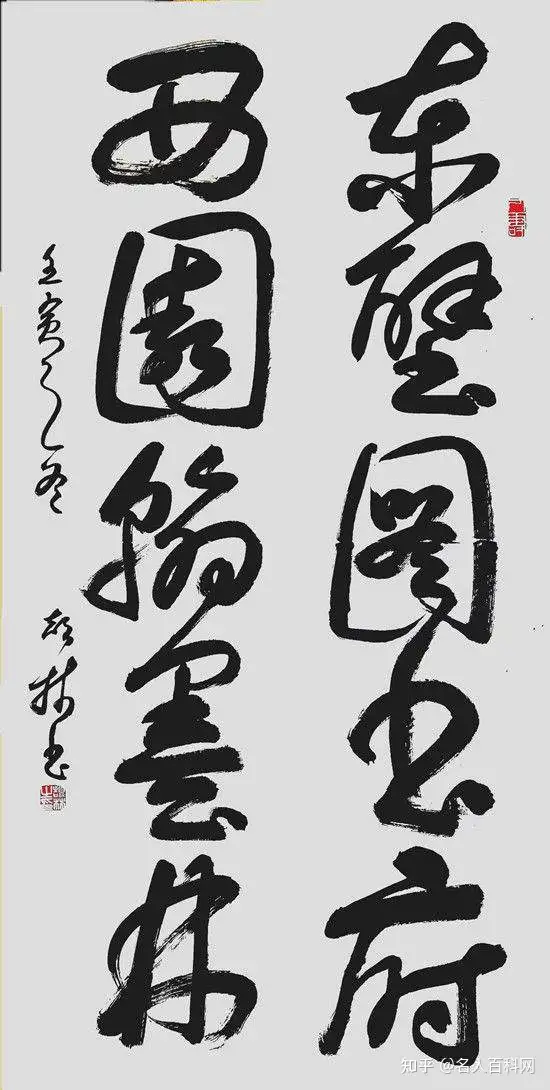 东壁图书府
西园翰墨林
壬寅之冬
林书
知乎 @名人百科网